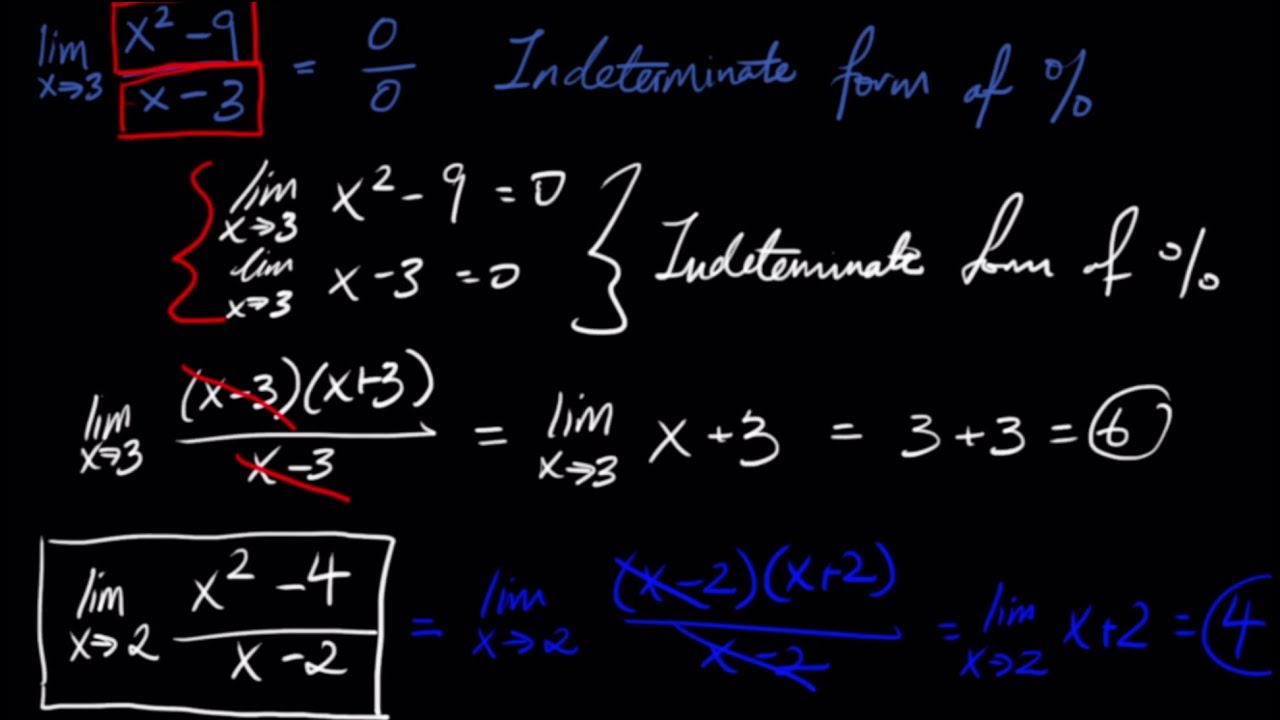 lim x→3 (x² - 9)/(x - 3) = 0/0 Indeterminate form of 0/0
lim x→3 x² - 9 = 0
lim x→3 x - 3 = 0 } Indeterminate form of 0/0
lim x→3 (x-3)(x+3)/(x-3) = lim x→3 x + 3 = 3 + 3 = 6
lim x→2 (x² - 4)/(x - 2) = lim x→2 (x-2)(x+2)/(x-2) = lim x→2 x+2 = 4